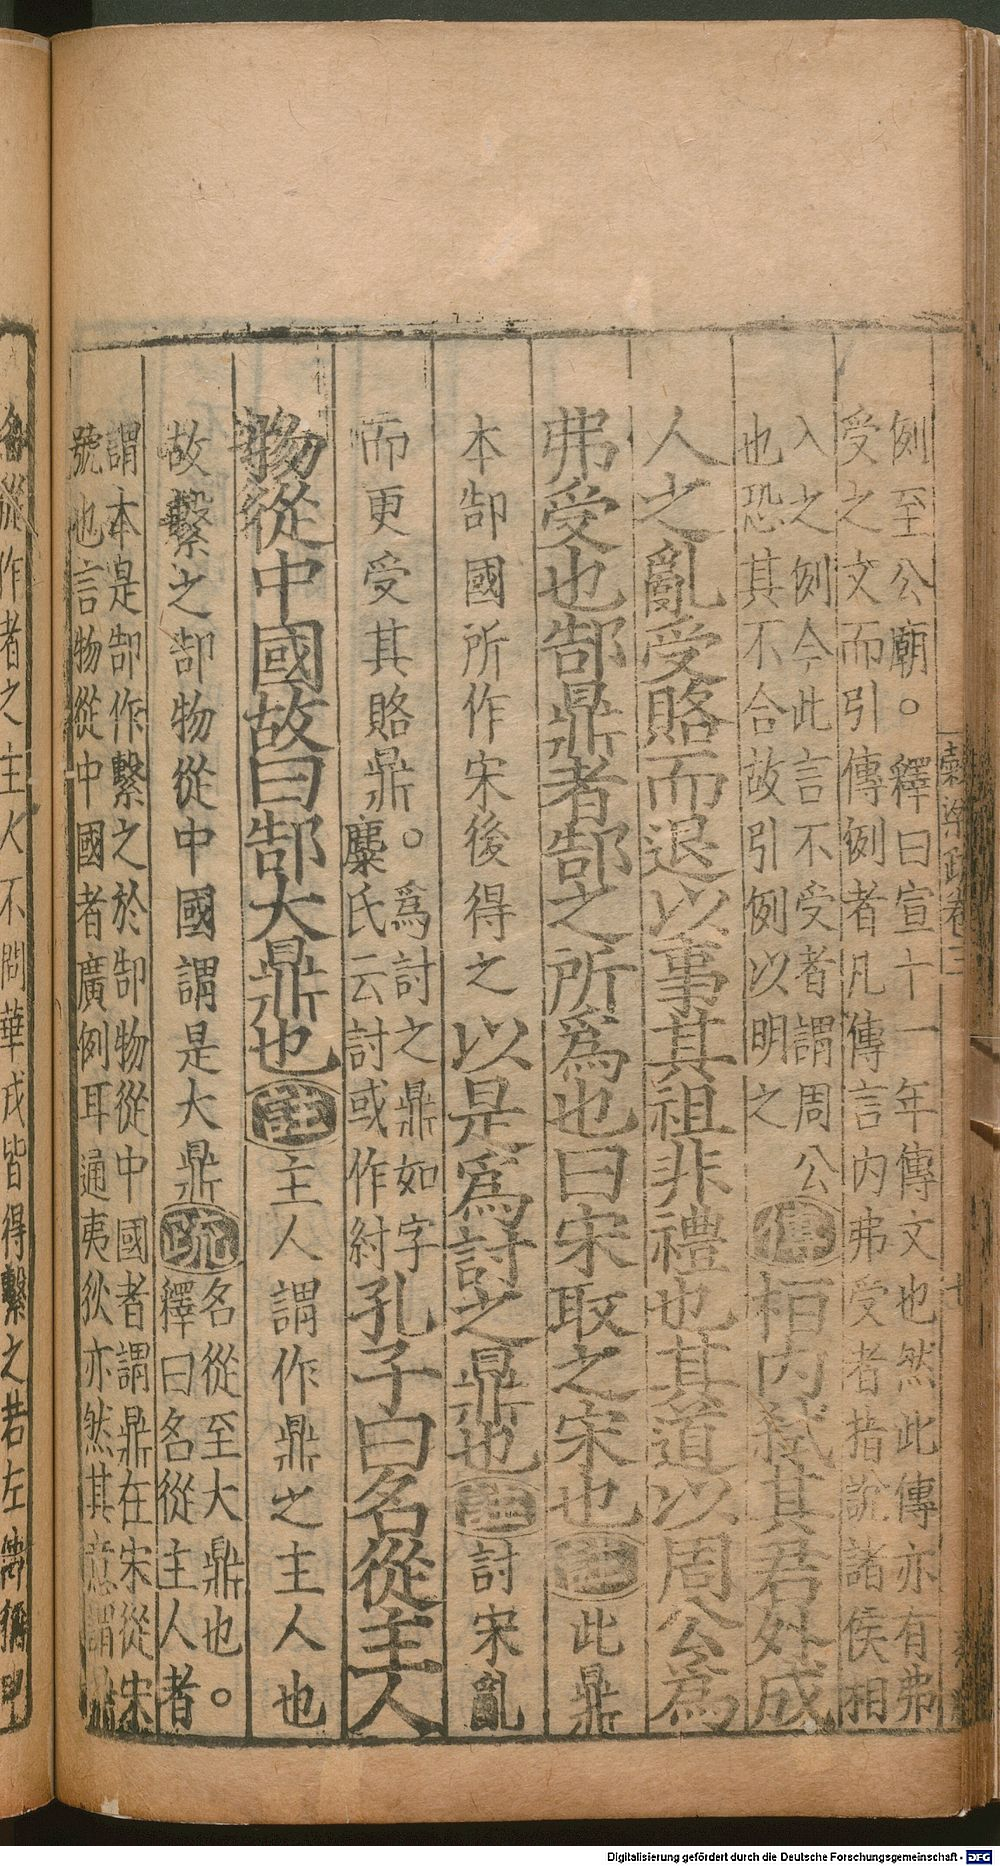 穀梁疏卷三
七
例至公廟。釋曰宣十一年傳文也然此傳亦有弗
受之文而引傳例者凡傳言内弗受者指說諸侯相
入之例今此言不受者謂周公
也恐其不合故引例以明之
傳桓内弑其君外成
人之亂受賂而退以事其祖非禮也其道以周公爲
弗受也郜鼎者郜之所爲也曰宋取之宋也註此鼎
本郜國所作宋後得之以是爲討之鼎也註討宋亂
而更受其賂鼎。
爲討之鼎如字
麋氏云討或作紂
孔子曰名從主人
物從中國故曰郜大鼎也註主人謂作鼎之主人也
故繫之郜物從中國謂是大鼎疏
名從至大鼎也。
釋曰名從主人者
謂本是郜作繫之於郜物從中國者謂鼎在宋從宋
號也言物從中國者廣例耳通夷狄亦然其意謂
作者之主人不問華戎皆得繫之若左
Digitalisierung gefördert durch die Deutsche Forschungsgemeinschaft - DFG